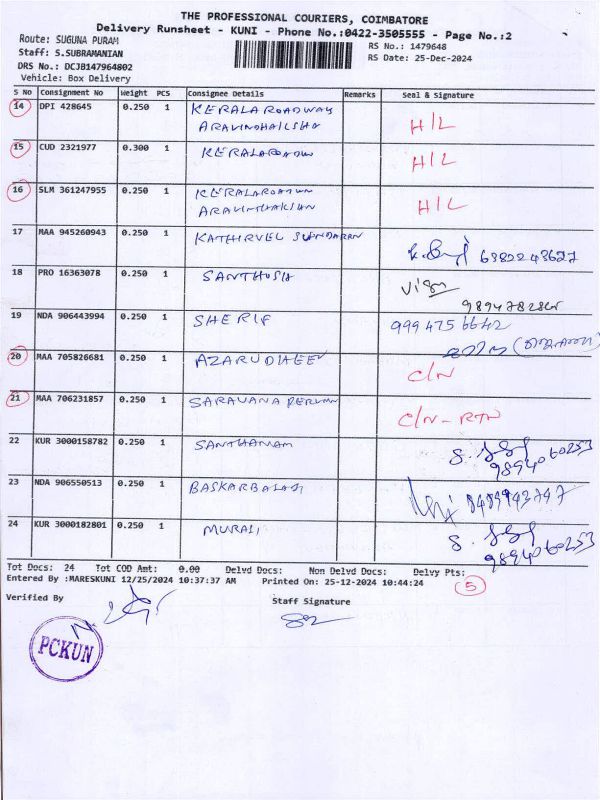 THE PROFESSIONAL COURIERS, COIMBATORE
Delivery Runsheet - KUNI - Phone No.:0422-3505555 - Page No.:2
Route: SUGUNA PURAM
RS No.: 1479648
Staff: S.SUBRAMANIAN
RS Date: 25-Dec-2024
DRS No.: DCJB147964802
Vehicle: Box Delivery
S No Consignment No Weight PCS Consignee Details Remarks Seal & Signature
14 DPI 428645 0.250 1 KERALA ROADWAY
ARAVINDHAILSHA
H/L
15 CUD 2321977 0.300 1 KERALAROADW
H/L
16 SLM 361247955 0.250 1 KERALAROADW
H/L
17 MAA 945260943 0.250 1 KATHIRVEL SUNDARAN
6382243627
18 PRO 16363078 0.250 1 SANTHOSH
19 NDA 906443994 0.250 1 SHERIF 9994756642
20 MAA 705826681 0.250 1 AZARUDHEEN
C/N
21 MAA 706231857 0.250 1 SARAVANA PERUMAL
C/N-RTN
22 KUR 3000158782 0.250 1 SANTHANAM
9894060253
23 NDA 906550513 0.250 1 BASKARBALAJI 8489943747
24 KUR 3000182801 0.250 1 MURALI
9894060253
Tot Docs: 24 Tot COD Amt: 0.00 Delvd Docs: Non Delvd Docs: Delvy Pts:
Entered By :MARESKUNI 12/25/2024 10:37:37 AM Printed On: 25-12-2024 10:44:24
5
Verified By Staff Signature
PCKUN